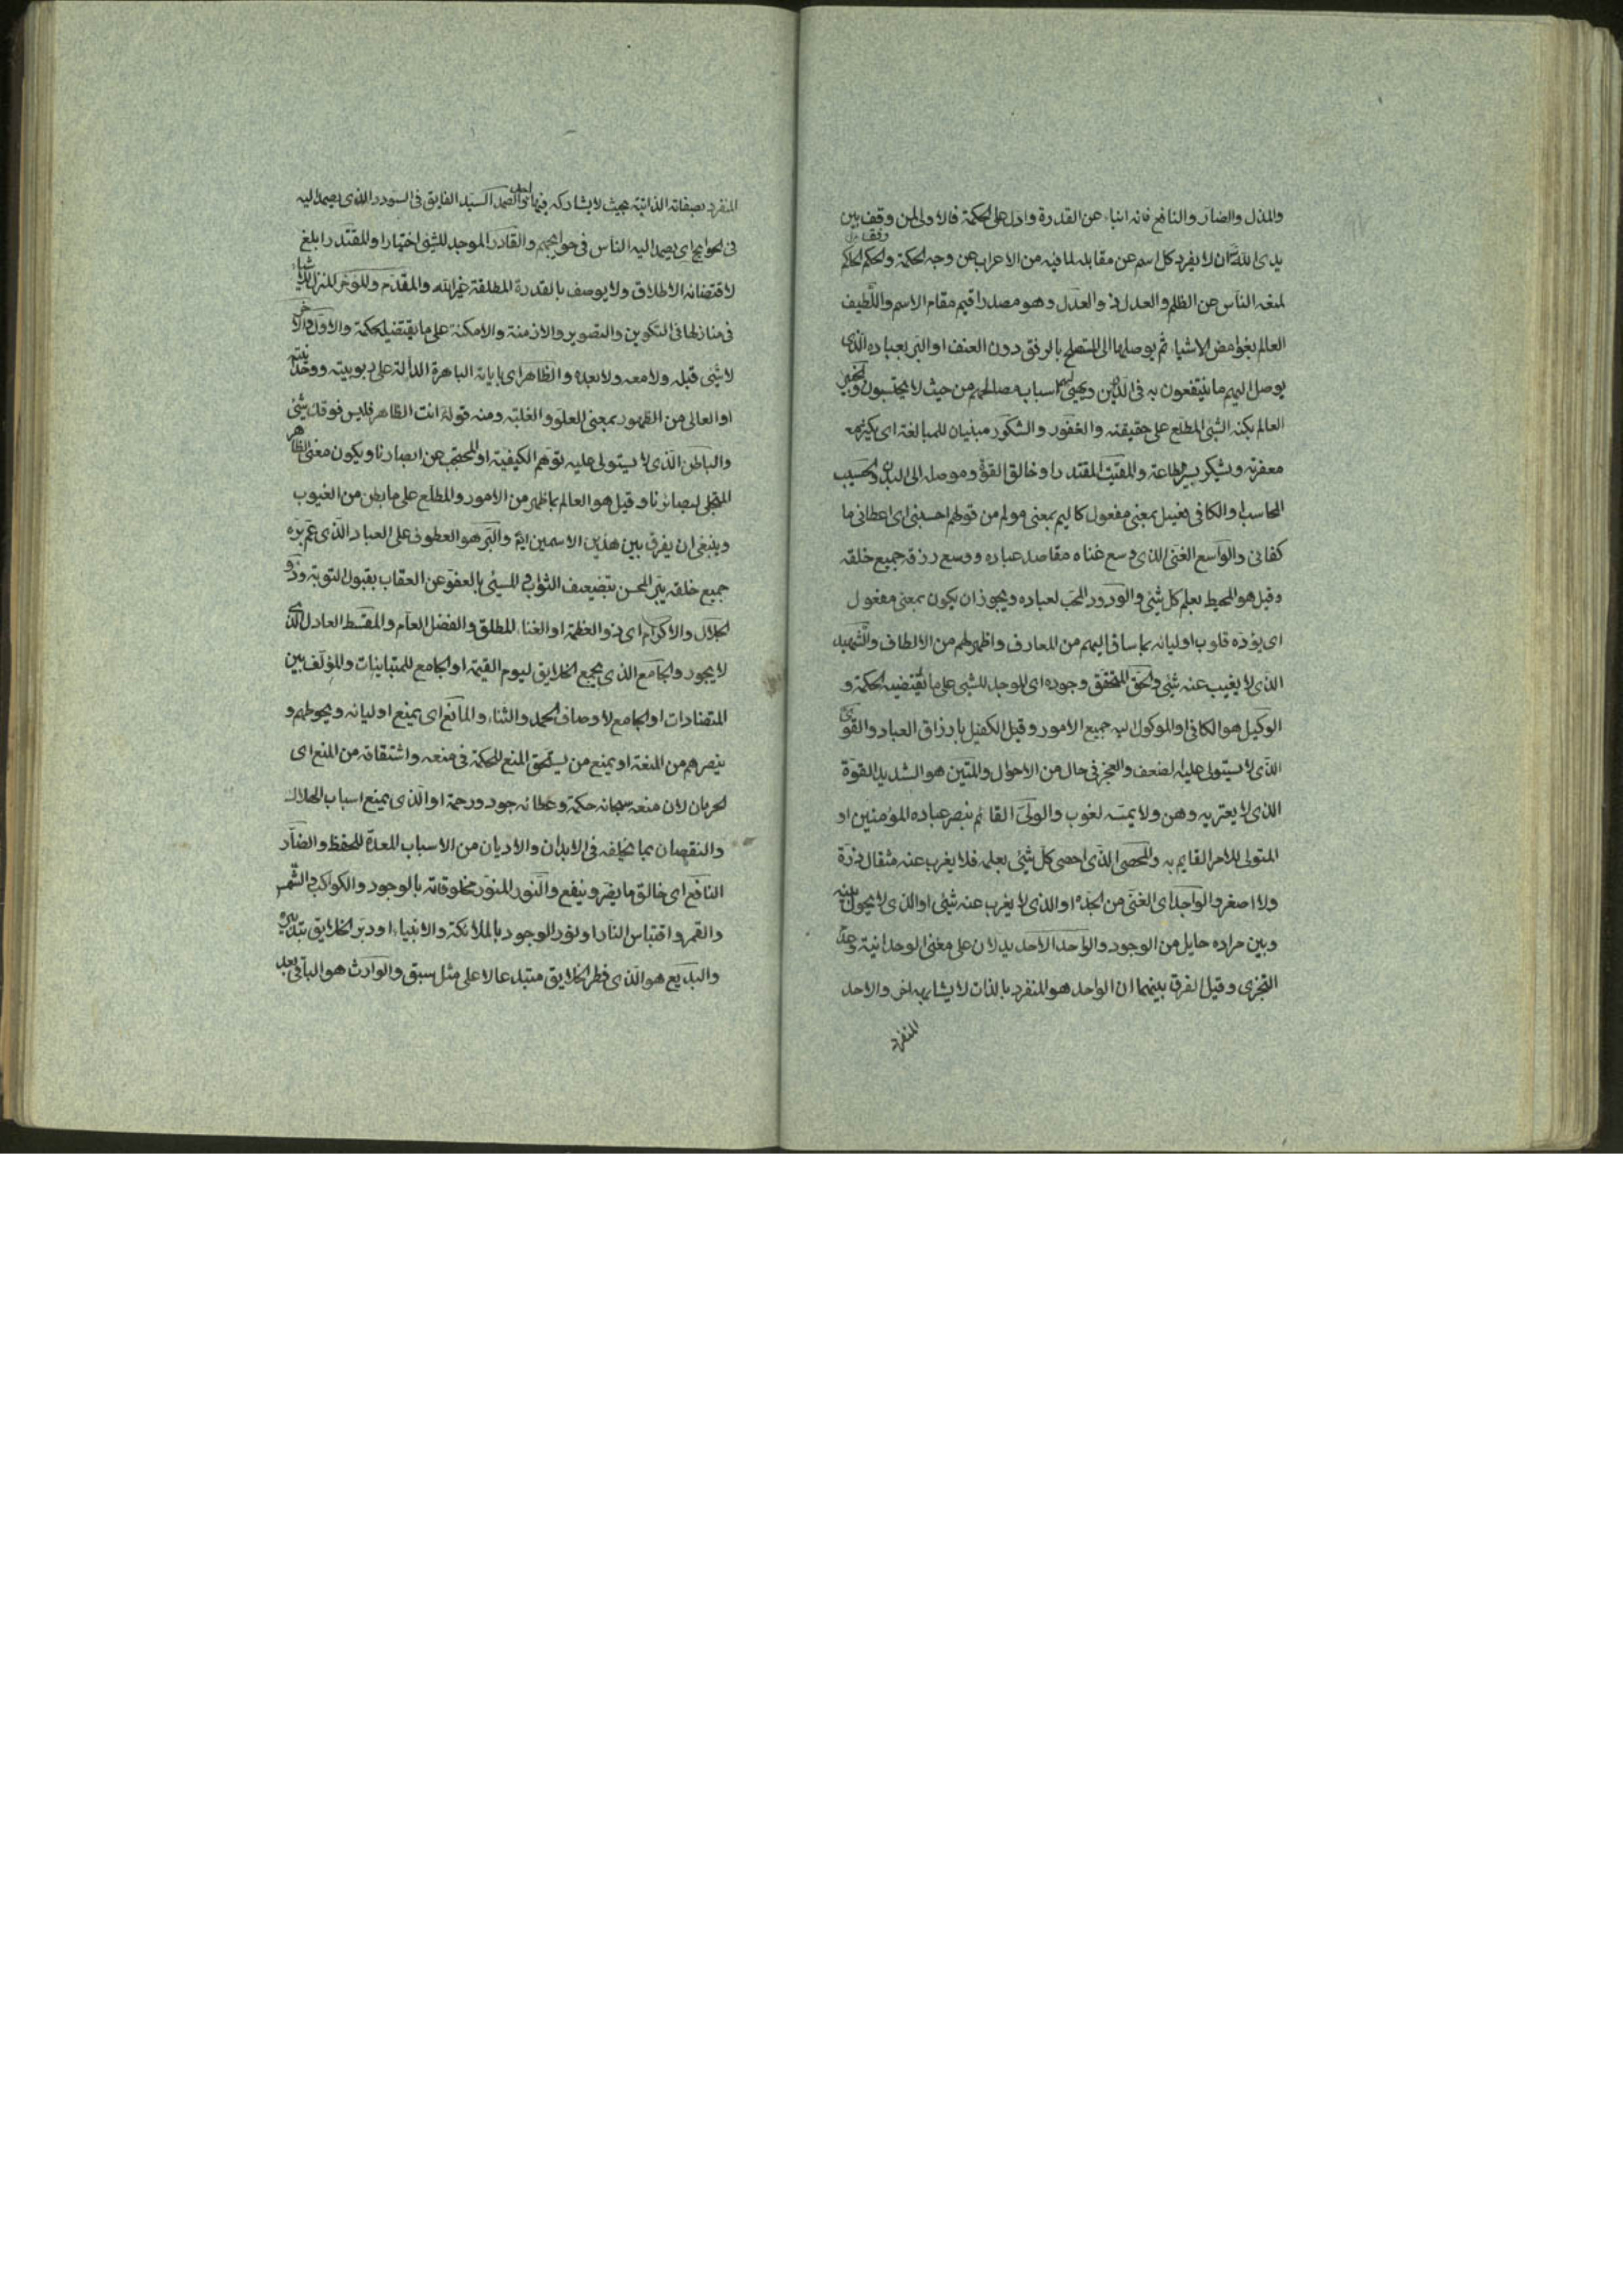 والمذل والضار والنافع فانه انباء عن القدرة وادل على الحكمة فالاولى لمن وقف بين
يدى الله ان لا يفرد كل اسم عن مقابله لما فيه من الاعراب عن وجه الحكمة والحكم الحاكم
لمنعه الناس عن الظلم والعدل ذو العدل وهو مصدر اقيم مقام الاسم واللطيف
العالم بغوامض الاشياء ثم يوصلها الى المستصلح بالرفق دون العنف او البر بعباده الذى
يوصل اليهم ما ينتفعون به فى الدارين ويهيئ لهم اسباب مصالحهم من حيث لا يحتسبون والخبير
العالم بكنه الشئ المطلع على حقيقته والغفور والشكور مبنيان للمبالغة اى يكثر
مغفرته ويشكر يسير الطاعة والمقيت المقتدر او خالق القوة وموصله الى البدن والحسيب
المحاسب او الكافى فعيل بمعنى مفعول كاليم بمعنى مولم من قولهم احسبنى اى اعطانى ما
كفانى والواسع الغنى الذى وسع غناه مقاصد عباده ووسع رزقه جميع خلقه
وقيل هو المحيط بعلم كل شئ والودود المحب لعباده ويجوز ان يكون بمعنى مفعول
اى يوده قلوب اوليائه بما ساق اليهم من المعارف واظهر لهم من الالطاف والشهيد
الذى لا يغيب عنه شئ والحق المتحقق وجوده اى الموجد للشئ على ما تقتضيه الحكمة و
الوكيل هو الكافى او الموكول اليه جميع الامور وقيل الكفيل بارزاق العباد والقوى
الذى لا يستولى عليه الضعف والعجز فى حال من الاحوال والمتين هو الشديد القوة
الذى لا يعتريه وهن ولا يمسه لغوب والولى القائم بنصر عباده المؤمنين او
المتولى للامر القايم به والمحصى الذى احصى كل شئ بعلمه فلا يغرب عنه مثقال ذرة
ولا اصغر والواجد اى الغنى من الجدة او الذى لا يغرب عنه شئ او الذى لا يحول بينه
وبين مراده حايل من الوجود والواحد الاحد يدلان على معنى الوحدانية وعدم
التجزى وقيل الفرق بينهما ان الواحد هو المنفرد بالذات لا يشابهه اخر والاحد
المنفرد
المنفرد بصفاته الذاتية بحيث لا يشاركه فيها احد والصمد السيد الفايق فى السودد الذى يصمد اليه
فى الحوايج اى يصمد اليه الناس فى حوايجهم والقادر الموجد للشئ اختيارا والمقتدر ابلغ
لاقتضائه الاطلاق ولا يوصف بالقدرة المطلقة غير الله والمقدم والموخر المنزل للاشياء
فى منازلها فى التكوين والتصوير والازمنة والامكنة على ما يقتضيه الحكمة والاول والاخر
لا شئ قبله ولا معه ولا بعده والظاهر اى باياته الباهرة الدالة على ربوبيته ووحدانيته
او العالى من الظهور بمعنى العلو والغلبة ومنه قوله انت الظاهر فليس فوقك شئ
والباطن الذى لا يستولى عليه توهم الكيفية او المحتجب عن ابصارنا ويكون معنى الظاهر
المتجلى لبصائرنا وقيل هو العالم بما ظهر من الامور والمطلع على ما بطن من الغيوب
وينبغى ان يفرق بين هذين الاسمين والبر هو العطوف على العباد الذى عم بره
جميع خلقه يبر المحسن بتضعيف الثواب والمسيئ بالعفو عن العقاب بقبول التوبة وذو
الجلال والاكرام اى ذو العظمة او الغناء المطلق والفضل العام والمقسط العادل الذى
لا يجور والجامع الذى يجمع الخلايق ليوم القيمة او الجامع للمتباينات والمؤلف بين
المتضادات او الجامع لاوصاف الحمد والثناء والمانع اى يمنع اوليائه ويحوطهم و
ينصرهم من المنعة او يمنع من يستحق المنع للحكمة فى منعه واشتقاقه من المنع اى
الحرمان لان منعه سبحانه حكمة وعطائه جود ورحمة او الذى يمنع اسباب الهلاك
والنقصان بما يخلقه فى الابدان والاديان من الاسباب المعدة للحفظ والضار
النافع اى خالق ما يضر وينفع والنور المنور مخلوقاته بالوجود والكواكب والشمس
والقمر واقتباس النار او نور الوجود بالملائكة والانبياء او دبر الخلايق بتدبيره
والبديع هو الذى فطر الخلايق مبتدعا لا على مثل سبق والوارث هو الباقى بعد